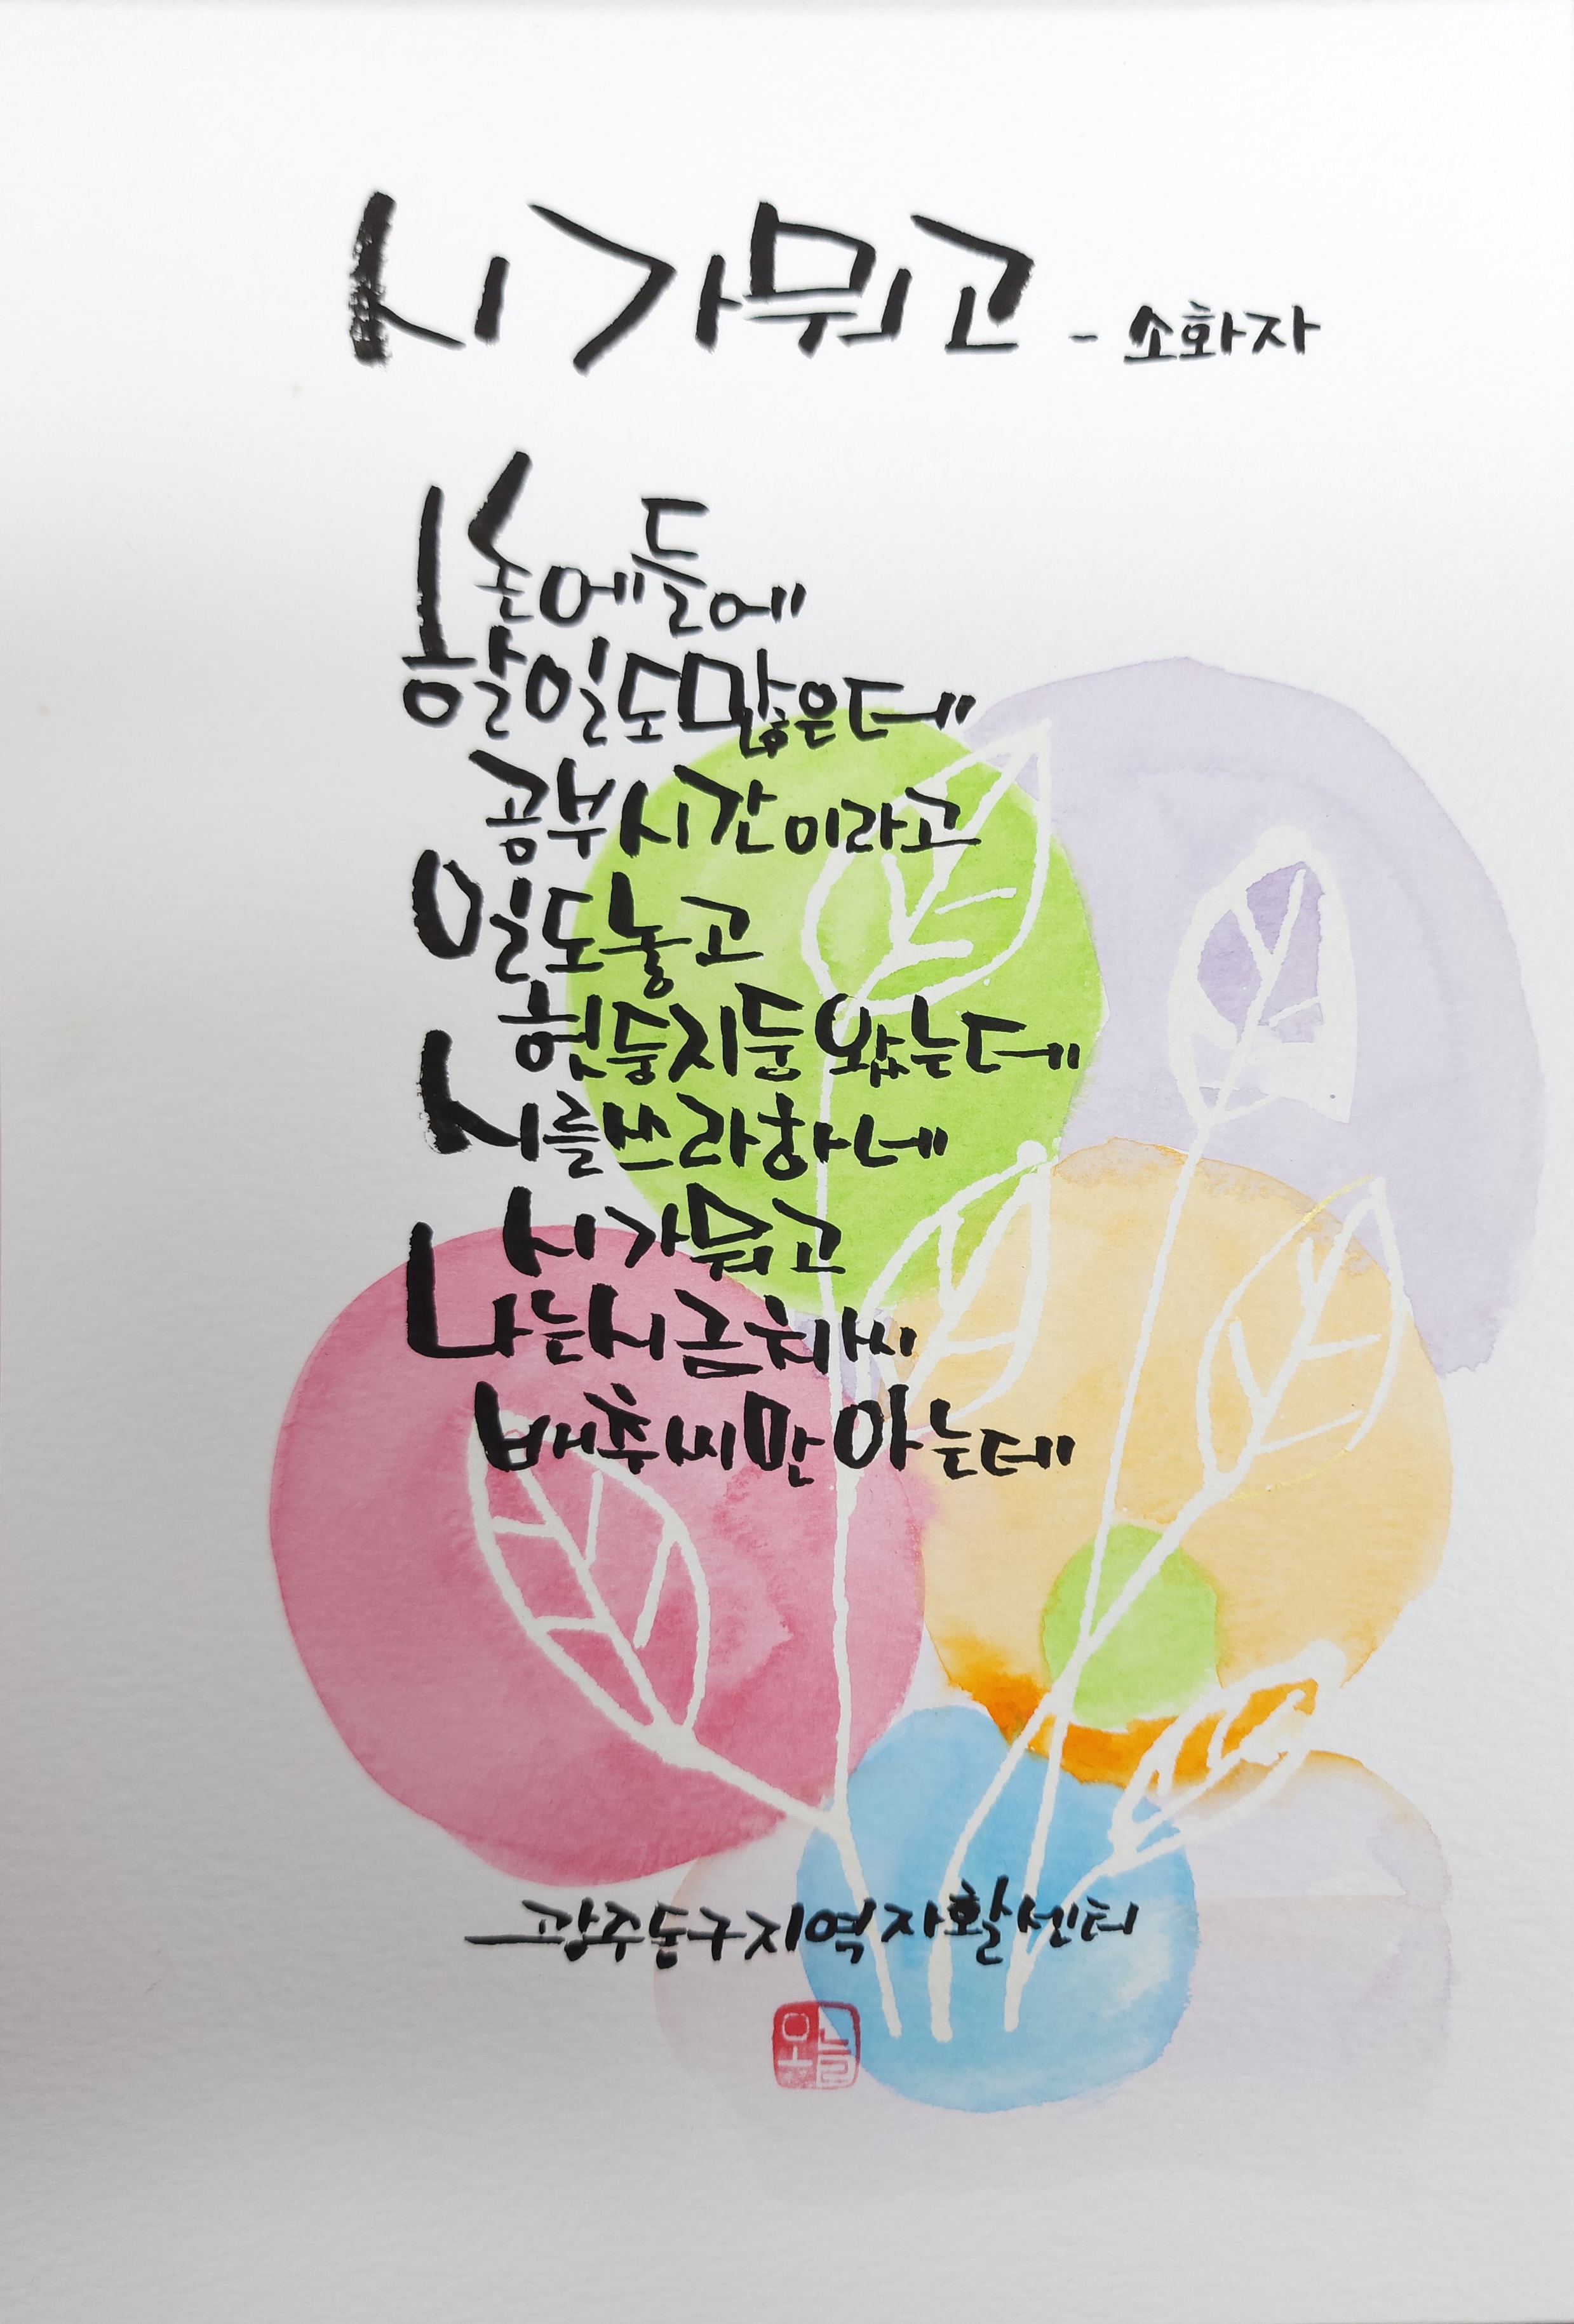 시가뭐고 - 소화자
논에들에
할일도많은데
공부시간이라고
일도놓고
헛둥지둥왔는데
시를쓰라하네
시가뭐고
나는시금치씨
배추씨만아는데
광주동구지역자활센터
오늘